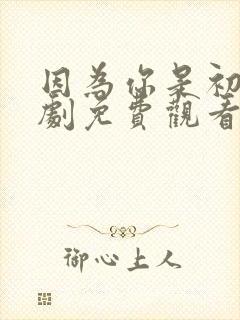 因為你是初
劇免費觀看
御心上人